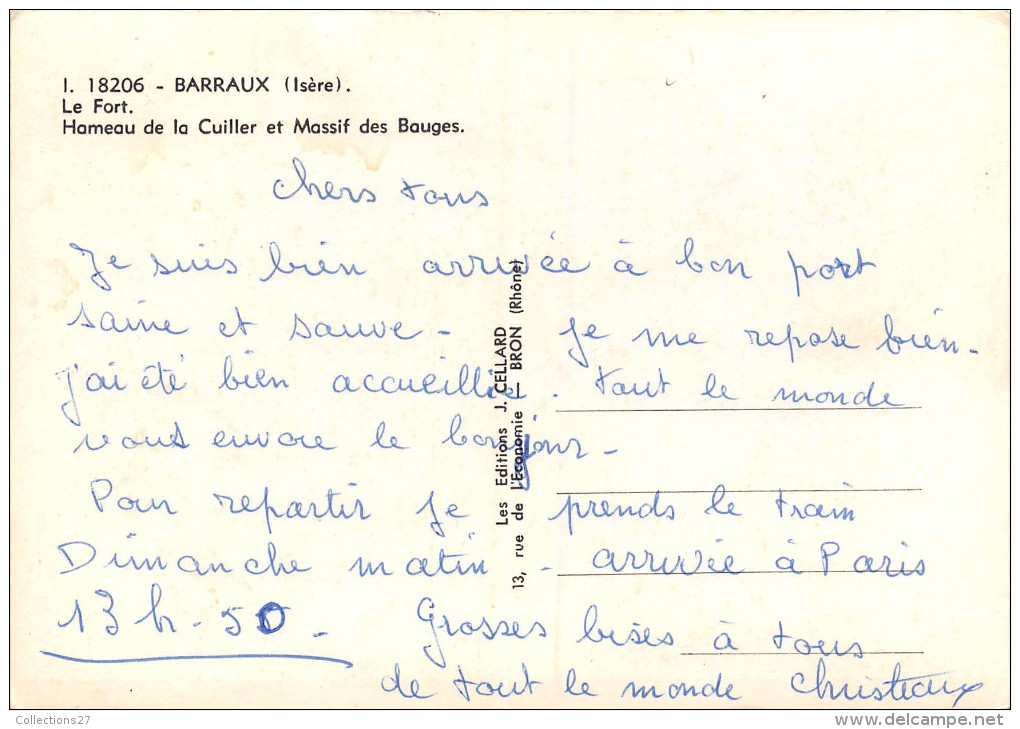 I. 18206 - BARRAUX (Isère).
Le Fort.
Hameau de la Cuiller et Massif des Bauges.
Chers tous
Je suis bien arrivée à bon port
saine et sauve - Je me repose bien -
j'ai été bien accueillie. tout le monde
vous envoie le bonjour -
Pour repartir je prends le train
Dimanche matin - arrivée à Paris
13h - 50 - Grosses bises à tous
de tout le monde
Les Editions J. CELLARD
13, rue de L'Economie — BRON (Rhône)
Collections27
www.delcampe.net